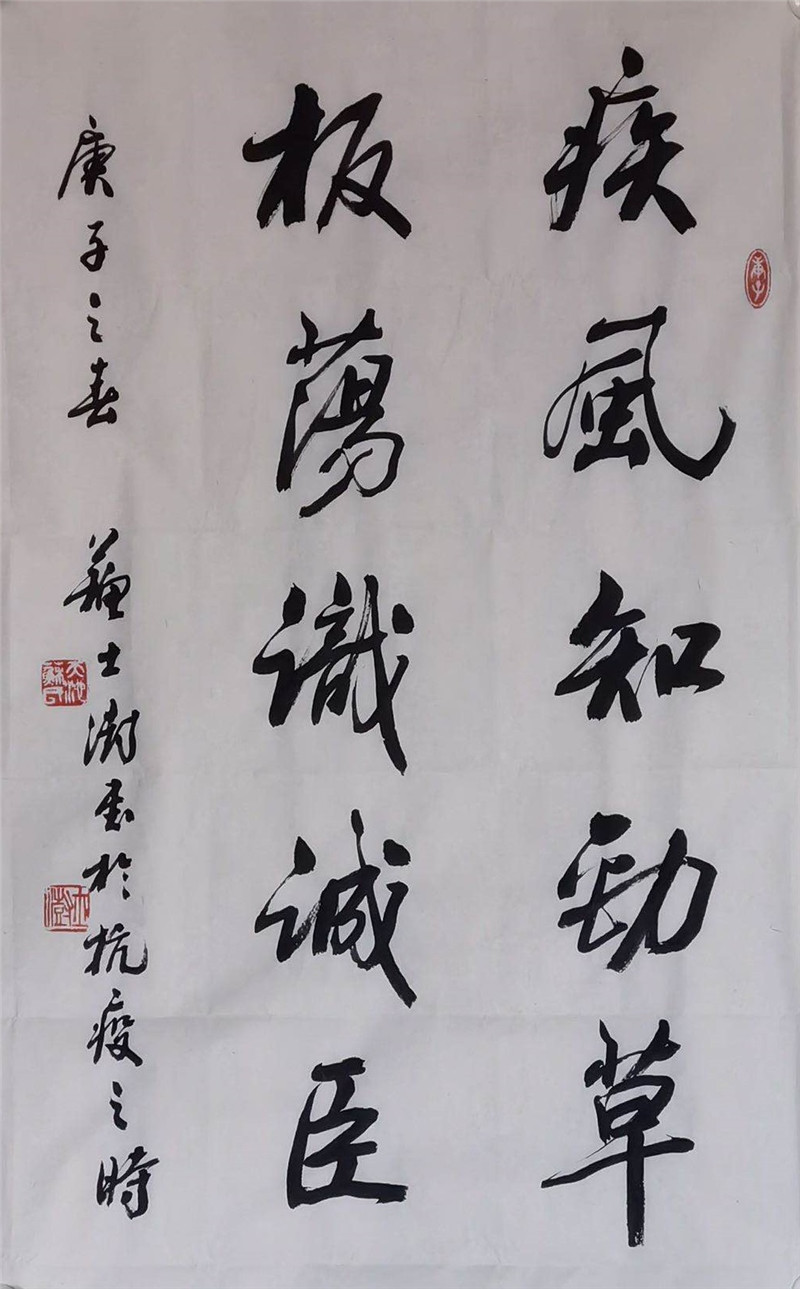 庚子
疾風知勁草
板蕩識誠臣
庚子之春 蘇士澍書於抗疫之時
士澍